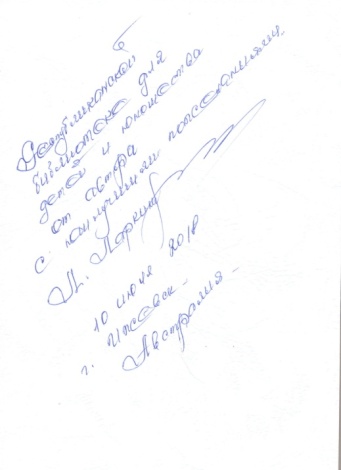 Республиканской
библиотеке для
детей и юношества
от автора
с наилучшими пожеланиями.
10 июля 2018
г.
Австралия-